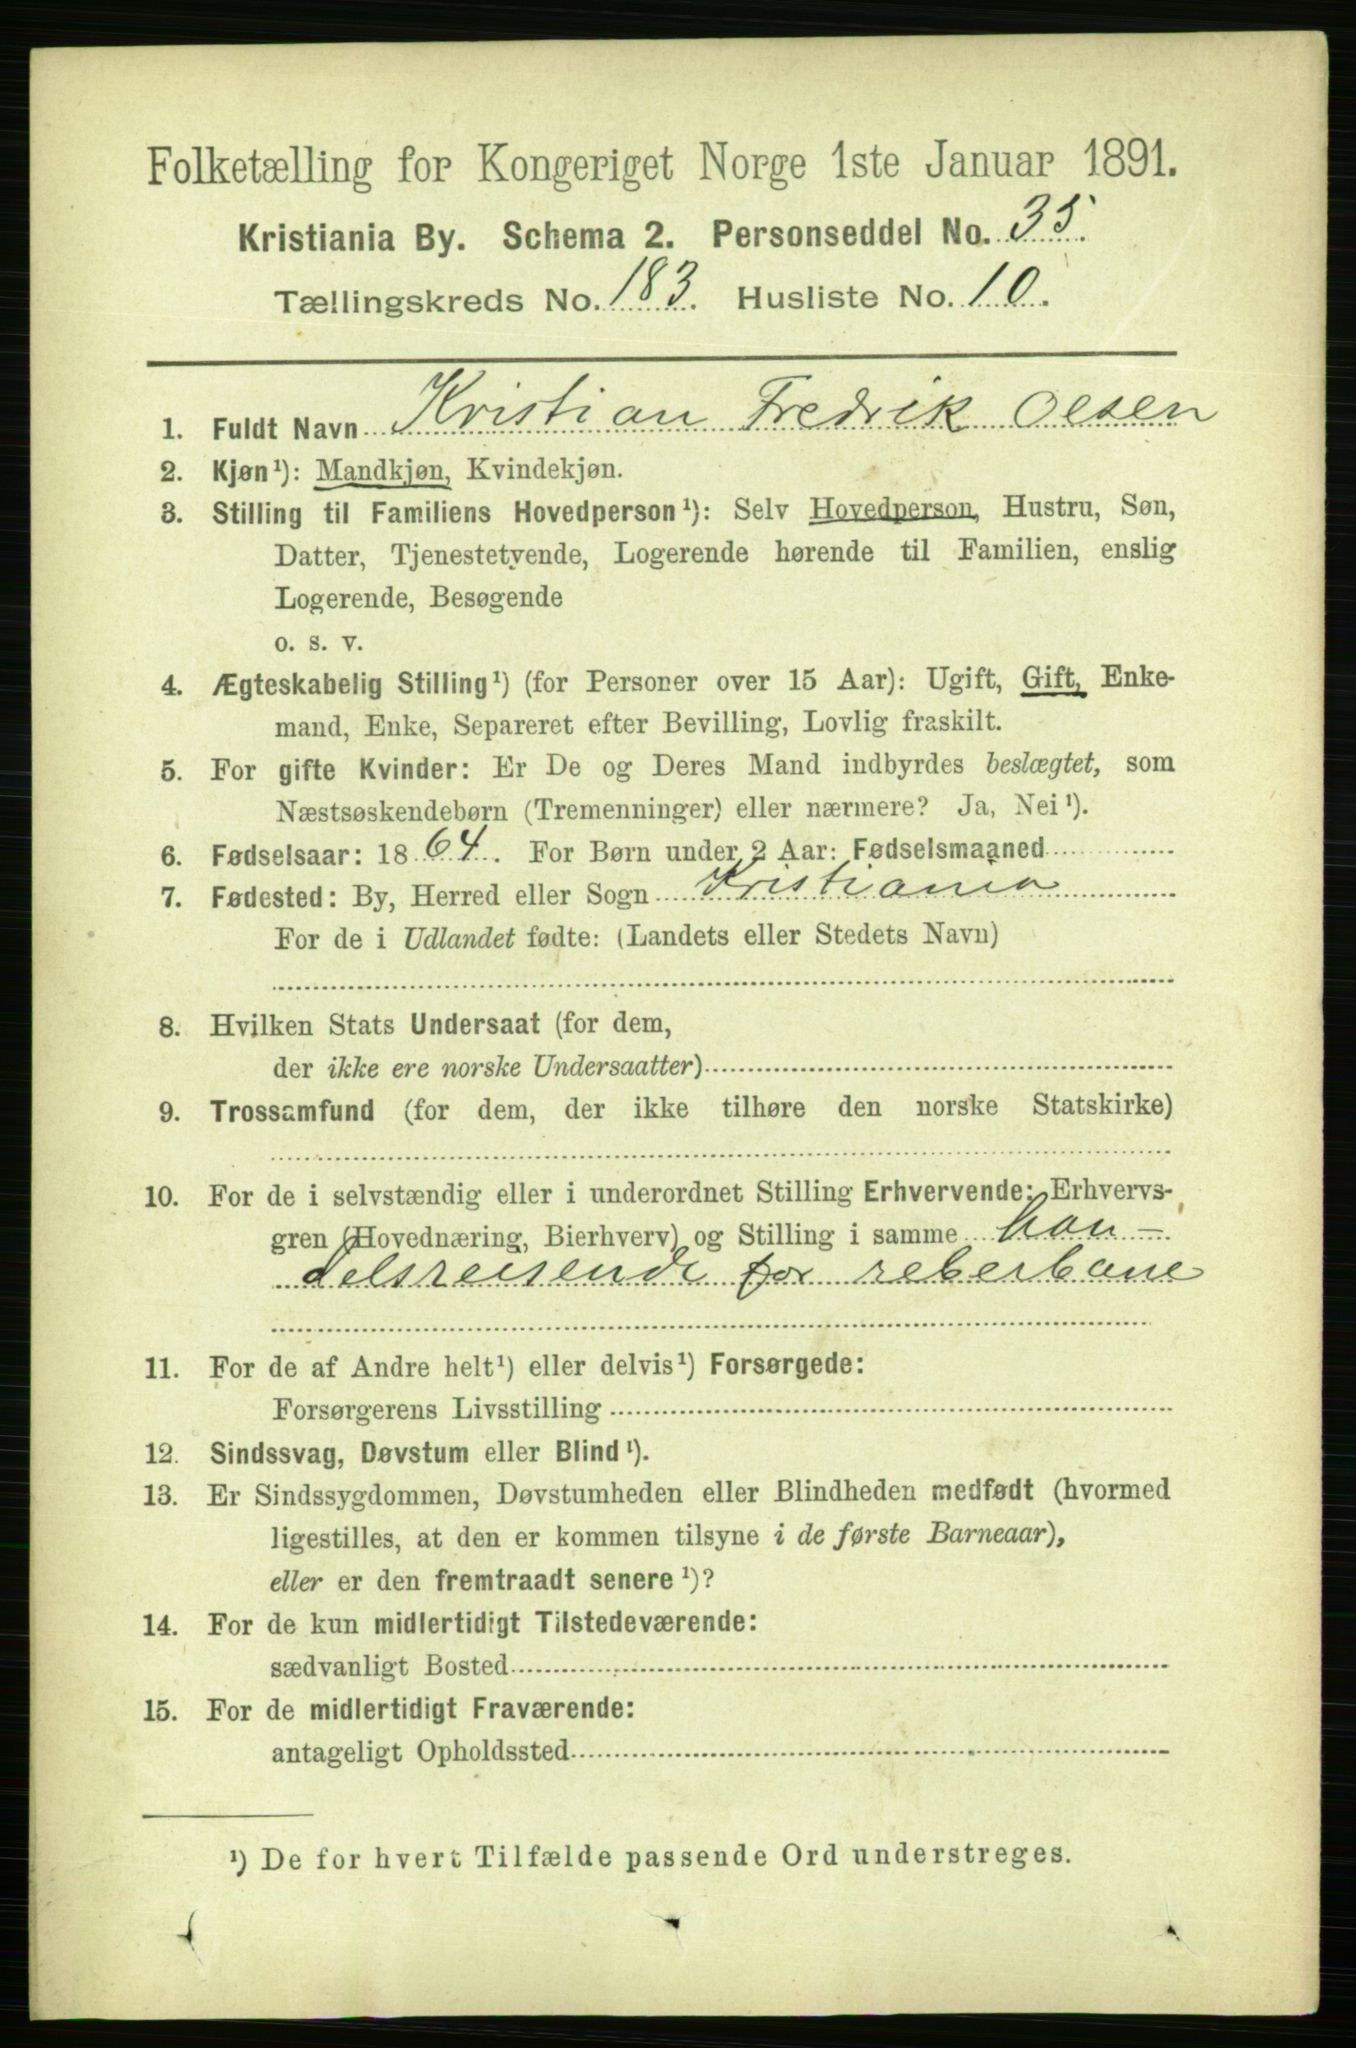 Folketælling for Kongeriget Norge 1ste Januar 1891.
Kristiania By. Schema 2. Personseddel No. 35.
Tællingskreds No. 183. Husliste No. 10.
1. Fuldt Navn Kristian Fredrik Olsen
2. Kjøn¹): Mandkjøn, Kvindekjøn.
3. Stilling til Familiens Hovedperson¹): Selv Hovedperson, Hustru, Søn,
Datter, Tjenestetyende, Logerende hørende til Familien, enslig
Logerende, Besøgende
o. s. v.
4. Ægteskabelig Stilling¹) (for Personer over 15 Aar): Ugift, Gift, Enke-
mand, Enke, Separeret efter Bevilling, Lovlig fraskilt.
5. For gifte Kvinder: Er De og Deres Mand indbyrdes beslægtet, som
Næstsøskendebørn (Tremenninger) eller nærmere? Ja, Nei¹).
6. Fødselsaar: 1864. For Børn under 2 Aar: Fødselsmaaned
7. Fødested: By, Herred eller Sogn Kristiania
For de i Udlandet fødte: (Landets eller Stedets Navn)
8. Hvilken Stats Undersaat (for dem,
der ikke ere norske Undersaatter)
9. Trossamfund (for dem, der ikke tilhøre den norske Statskirke)
10. For de i selvstændig eller i underordnet Stilling Erhvervende: Erhvervs-
gren (Hovednæring, Bierhverv) og Stilling i samme han-
delsreisende for reberbane
11. For de af Andre helt¹) eller delvis¹) Forsørgede:
Forsørgerens Livsstilling
12. Sindssvag, Døvstum eller Blind¹).
13. Er Sindssygdommen, Døvstumheden eller Blindheden medfødt (hvormed
ligestilles, at den er kommen tilsyne i de første Barneaar),
eller er den fremtraadt senere¹)?
14. For de kun midlertidigt Tilstedeværende:
sædvanligt Bosted
15. For de midlertidigt Fraværende:
antageligt Opholdssted
¹) De for hvert Tilfælde passende Ord understreges.